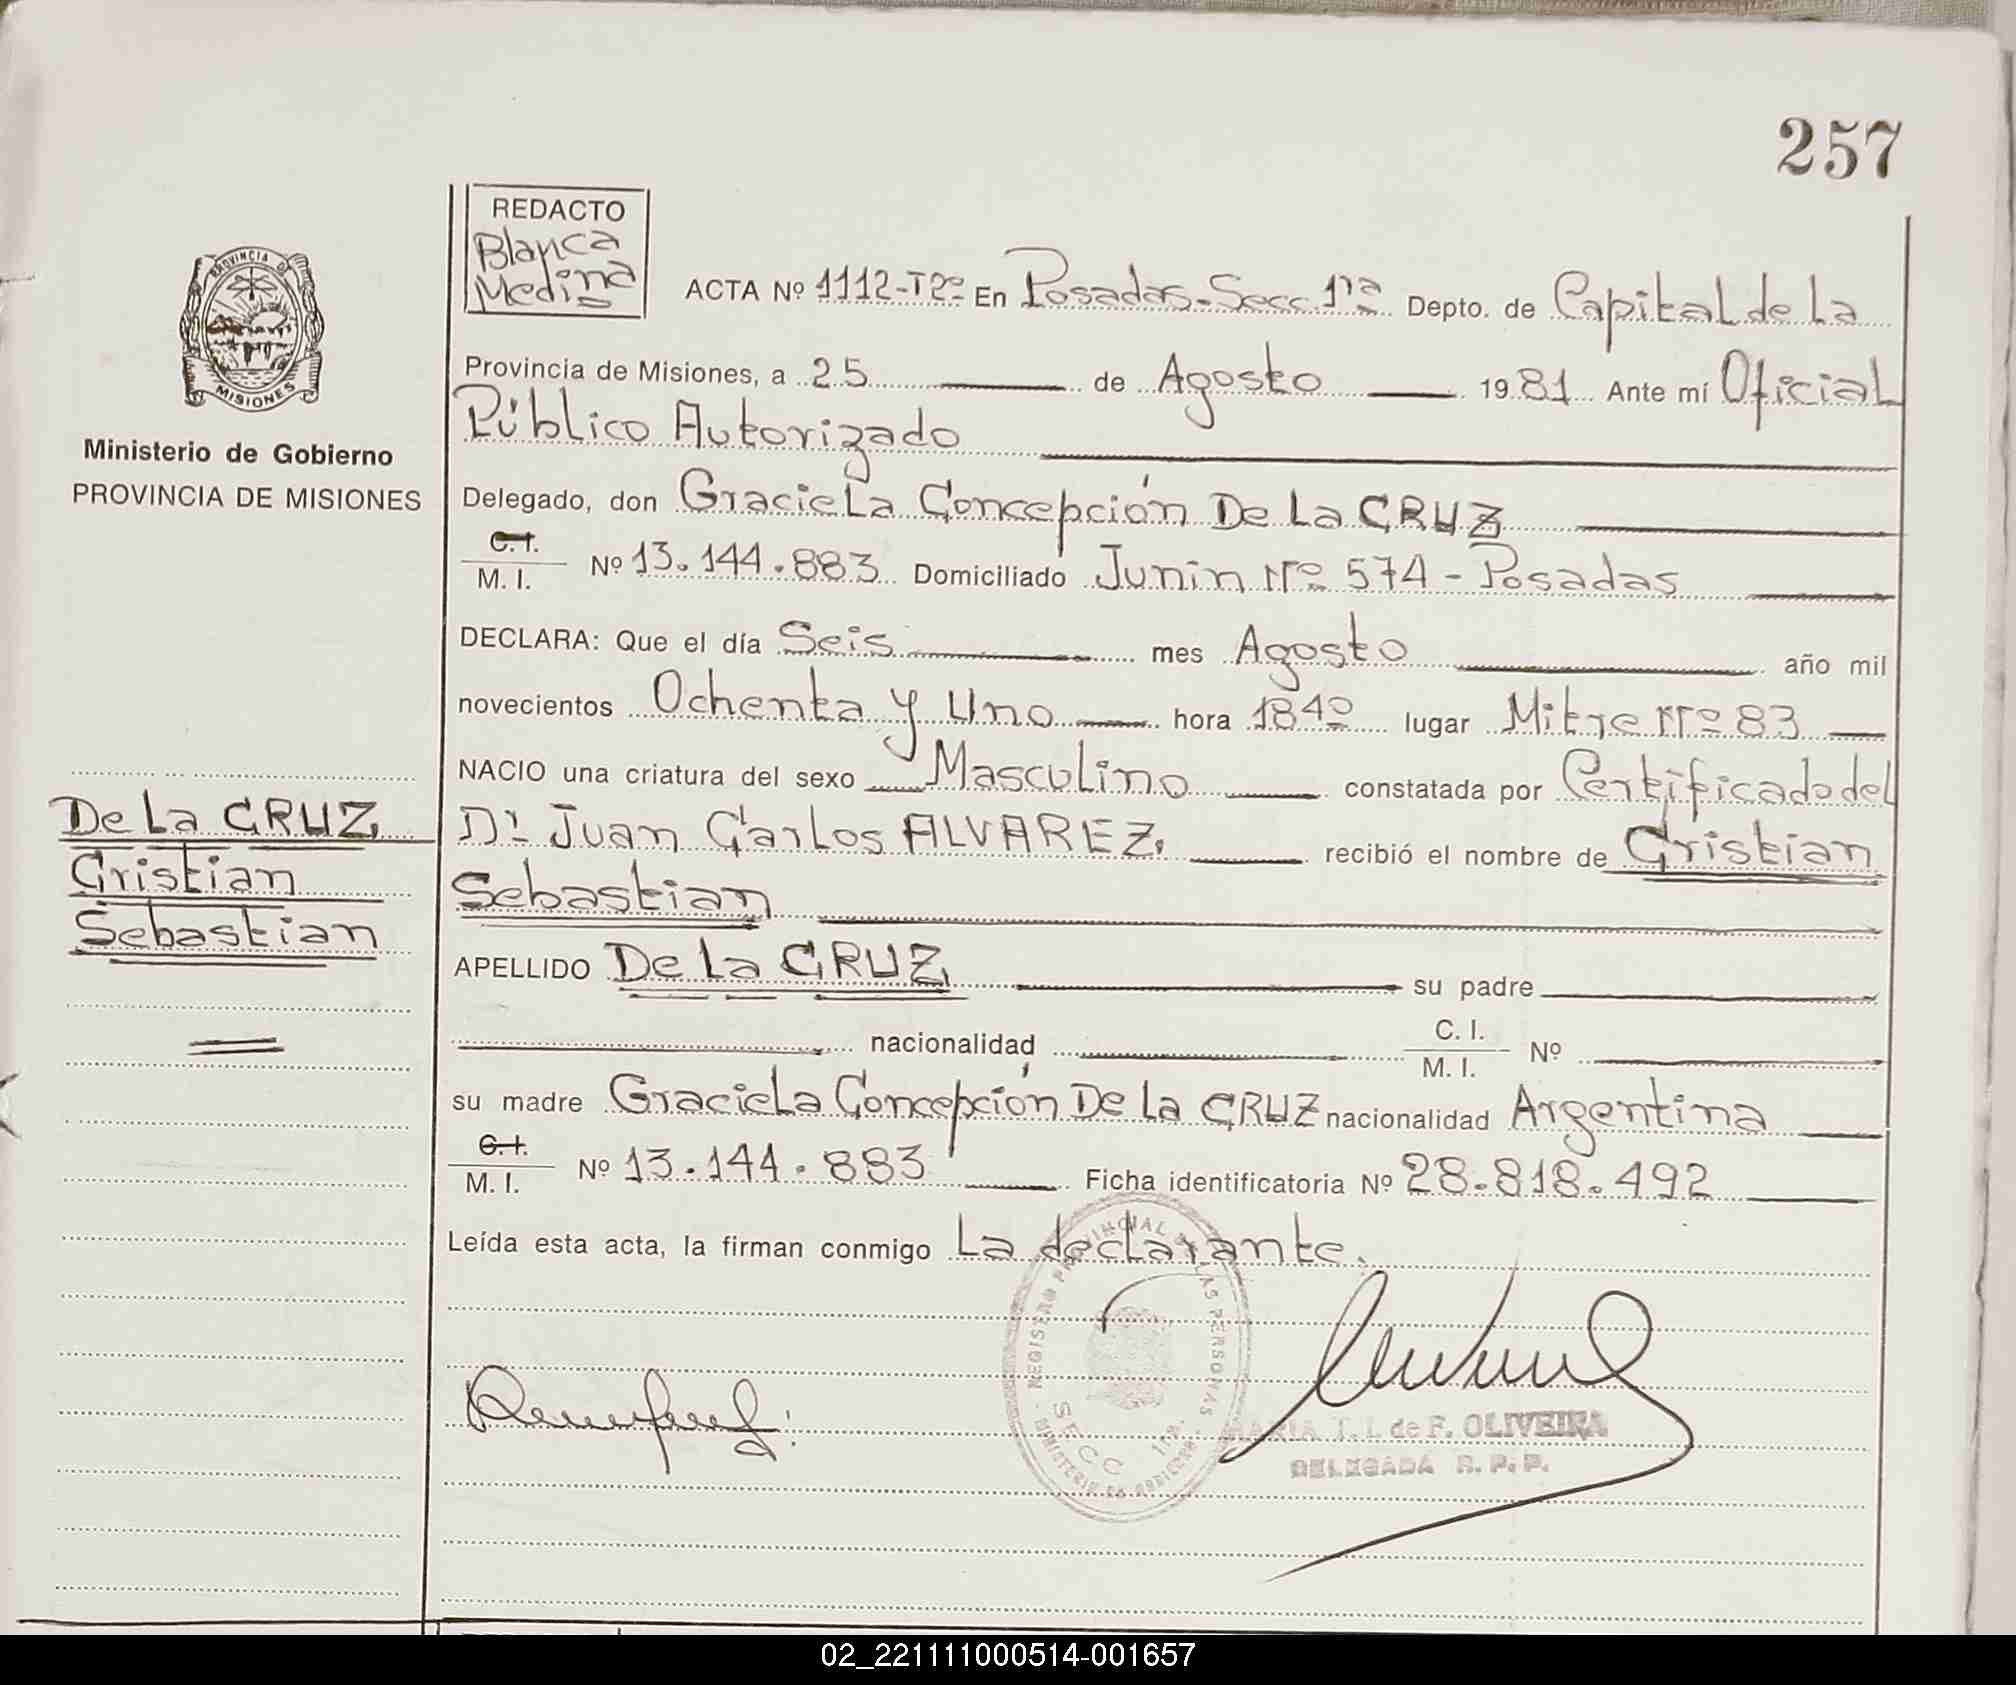 257
REDACTO
Blanca
Medina
PROVINCIA DE
MISIONES
Ministerio de Gobierno
PROVINCIA DE MISIONES
ACTA Nº 1112-Tº2º En Posadas-Secc. 1ra Depto. de Capital de La
Provincia de Misiones, a 25 de Agosto 1981 Ante mí Oficial
Público Autorizado
Delegado, don Graciela Concepción De La CRUZ
C. I. / M. I. Nº 13.144.883 Domiciliado Junin Nº 574 - Posadas
DECLARA: Que el día Seis mes Agosto año mil
novecientos Ochenta y Uno hora 18 40 lugar Mitre Nº 83
NACIO una criatura del sexo Masculino constatada por Certificado del
Dr Juan Carlos ALVAREZ, recibió el nombre de Cristian
Sebastian
De La CRUZ,
Cristian
Sebastian
APELLIDO De La CRUZ, su padre
nacionalidad C. I. / M. I. Nº
su madre Graciela Concepción De La CRUZ nacionalidad Argentina
C. I. / M. I. Nº 13.144.883 Ficha identificatoria Nº 28.818.492
Leída esta acta, la firman conmigo La declarante.
REGISTRO PROVINCIAL LAS PERSONAS
SECC 1ra.
MINISTERIO DE GOBIERNO
MARIA T. I. de F. OLIVEIRA
DELEGADA R. P. P.
02_221111000514-001657